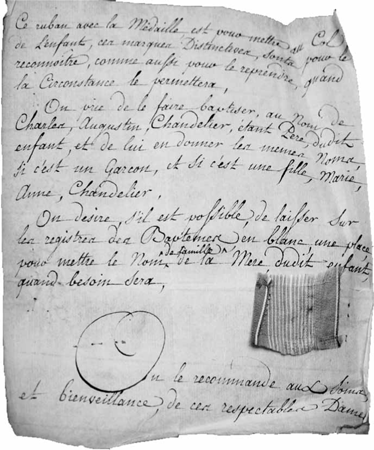 Ce ruban avec la Médaille est pour mettre au Col
de L'enfant, ces marques Distinctives, sont pour le
reconnoître, comme aussi pour le reprendre, quand
la Circonstance le permettera,
On vue de le faire baptiser, au Nom de
Charles, Augustin, Chandelier, étant Père dudit
enfant, et de lui en donner les memes Noms
si c'est un Garçon, et si c'est une fille, Marie,
Anne, Chandelier,
On desire, s'il est possible, de laisser sur
les registres des Baptemes en blanc une place
pour mettre le Nom de famille de la Mere dudit enfant,
quand besoin sera,
On le recommande aux Soins
et bienveillance, de ces respectables Dames